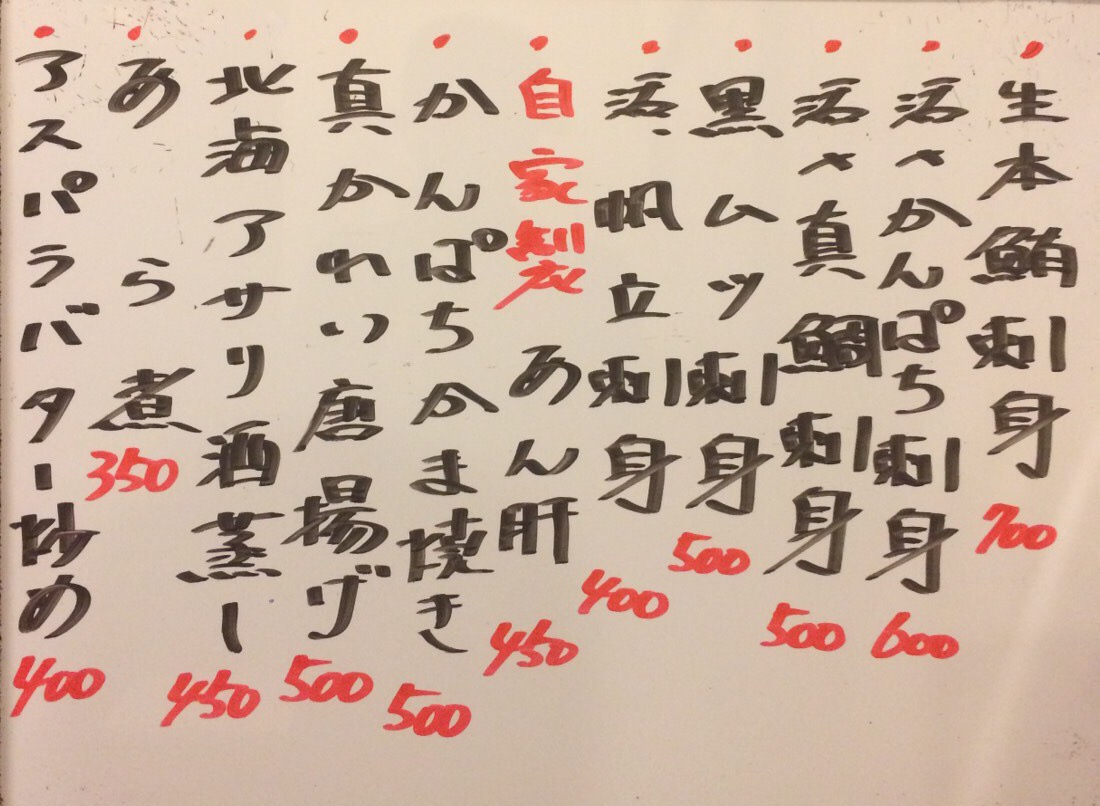 ・生本鮪刺身 700
・活〆かんぱち刺身 600
・活〆真鯛刺身 500
・黒ムツ刺身 500
・活帆立刺身 400
・自家製あん肝 450
・かんぱちかま焼き 500
・真かれい唐揚げ 500
・北海アサリ酒蒸し 450
・あら煮 350
・アスパラバター炒め 400